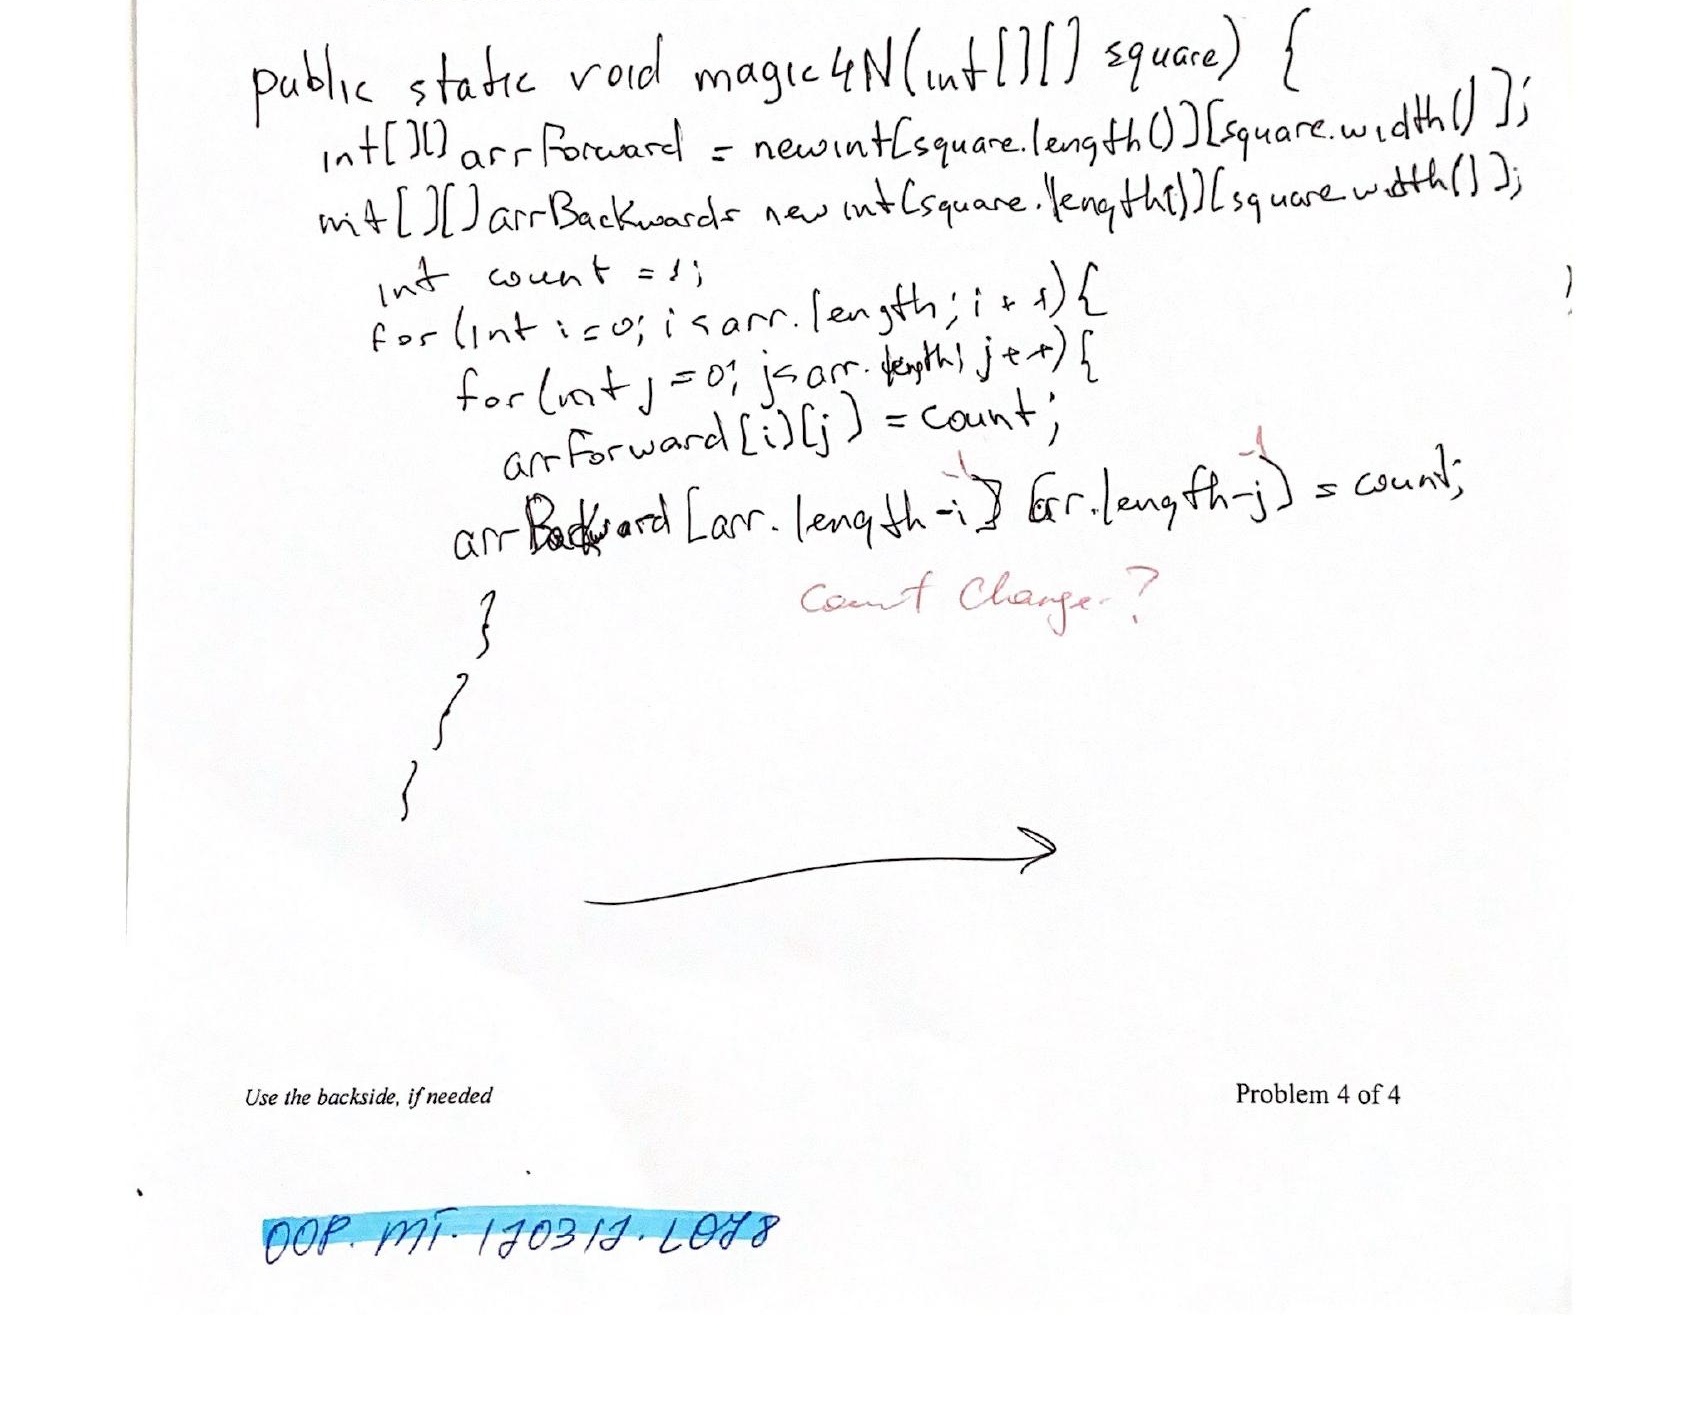 public static void magic4N(int[][] square) {
int[][] arrForward = newint[square.length()][square.width()];
int[][] arrBackwards new int[square.length()][square.width()];
int count = 1;
for (int i=0; i<arr.length; i++){
for (int j=0; j<arr.length; j++){
arrForward[i][j] = count;
-1 -1
arrBackward[arr.length-i][arr.length-j] = count;
Count Change-?
}
}
}
Use the backside, if needed
Problem 4 of 4
OOP. MT. 170317. L078